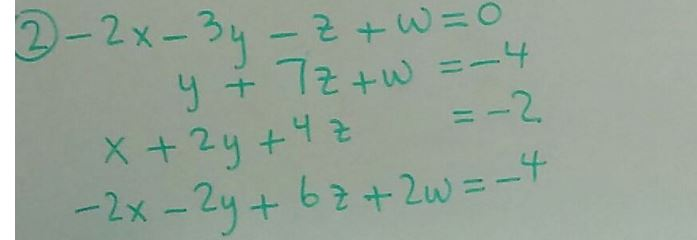 ② -2x - 3y - z + w = 0
y + 7z + w = -4
x + 2y + 4z = -2
-2x - 2y + 6z + 2w = -4